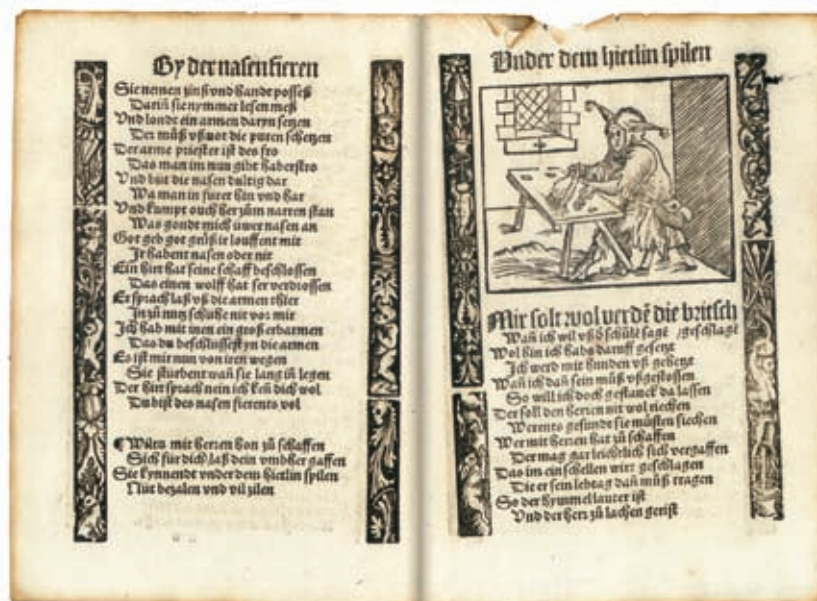 By der nasen fieren
Sie nemen zinß vnd handt posseß
Darin̄ sie nymmer lesen meß
Vnd londe ein armen daryn setzen
Der müß vß not die puren schetzen
Der arme priester ist des fro
Das man im nun gibt haberstro
Vnd büt die nasen dultig dar
Wa man in füret hin vnd har
Vnd kumpt ouch her zům narren statt
Was gondt mich üwer nasen an
Got geb got grüß ir louffent mit
Jr habent nasen oder nit
Ein hirt hat seine schaff beschlossen
Das einen wolff hat ser verdrossen
Er sprach laß vß die armen thier
Jn zů nutz schühe nit vor mir
Jch hab mit inen ein groß erbarmen
Das du beschlüssest yn die armen
Es ist mir nun von iren wegen
Sie stürbent wan̄ sie lang in̄ legen
Der hirt sprach nein ich ken̄ dich wol
Du bist des nasen fierents vol
¶ Wiltu mit herren hon zů schaffen
Sich für dich/ laß dein vmbher gaffen
Sie kynnendt vnder dem hietlin spilen
Nüt bezalen vnd vil zilen
Vnder dem hietlin spilen
Mir solt wol werdē die britsch
Wan̄ ich wil vß schült sagē /geschlagē
Wol hin ich habs daruff gesetzt
Jch werd mit hunden vß gehetzt
Wan̄ ich dan̄ sein müß vßgestossen
So will ich doch gestanck da lassen
Der soll den herren nit wol riechen
Werents gesundt sie müsten siechen
Wer mit herren hat zů schaffen
Der mag gar leichtlich sich vergaffen
Das im ein schellen wirt geschlagen
Die er sein lebtag dan̄ müß tragen
So der hymmel lauter ist
Vnd der herr zů lachen gerist